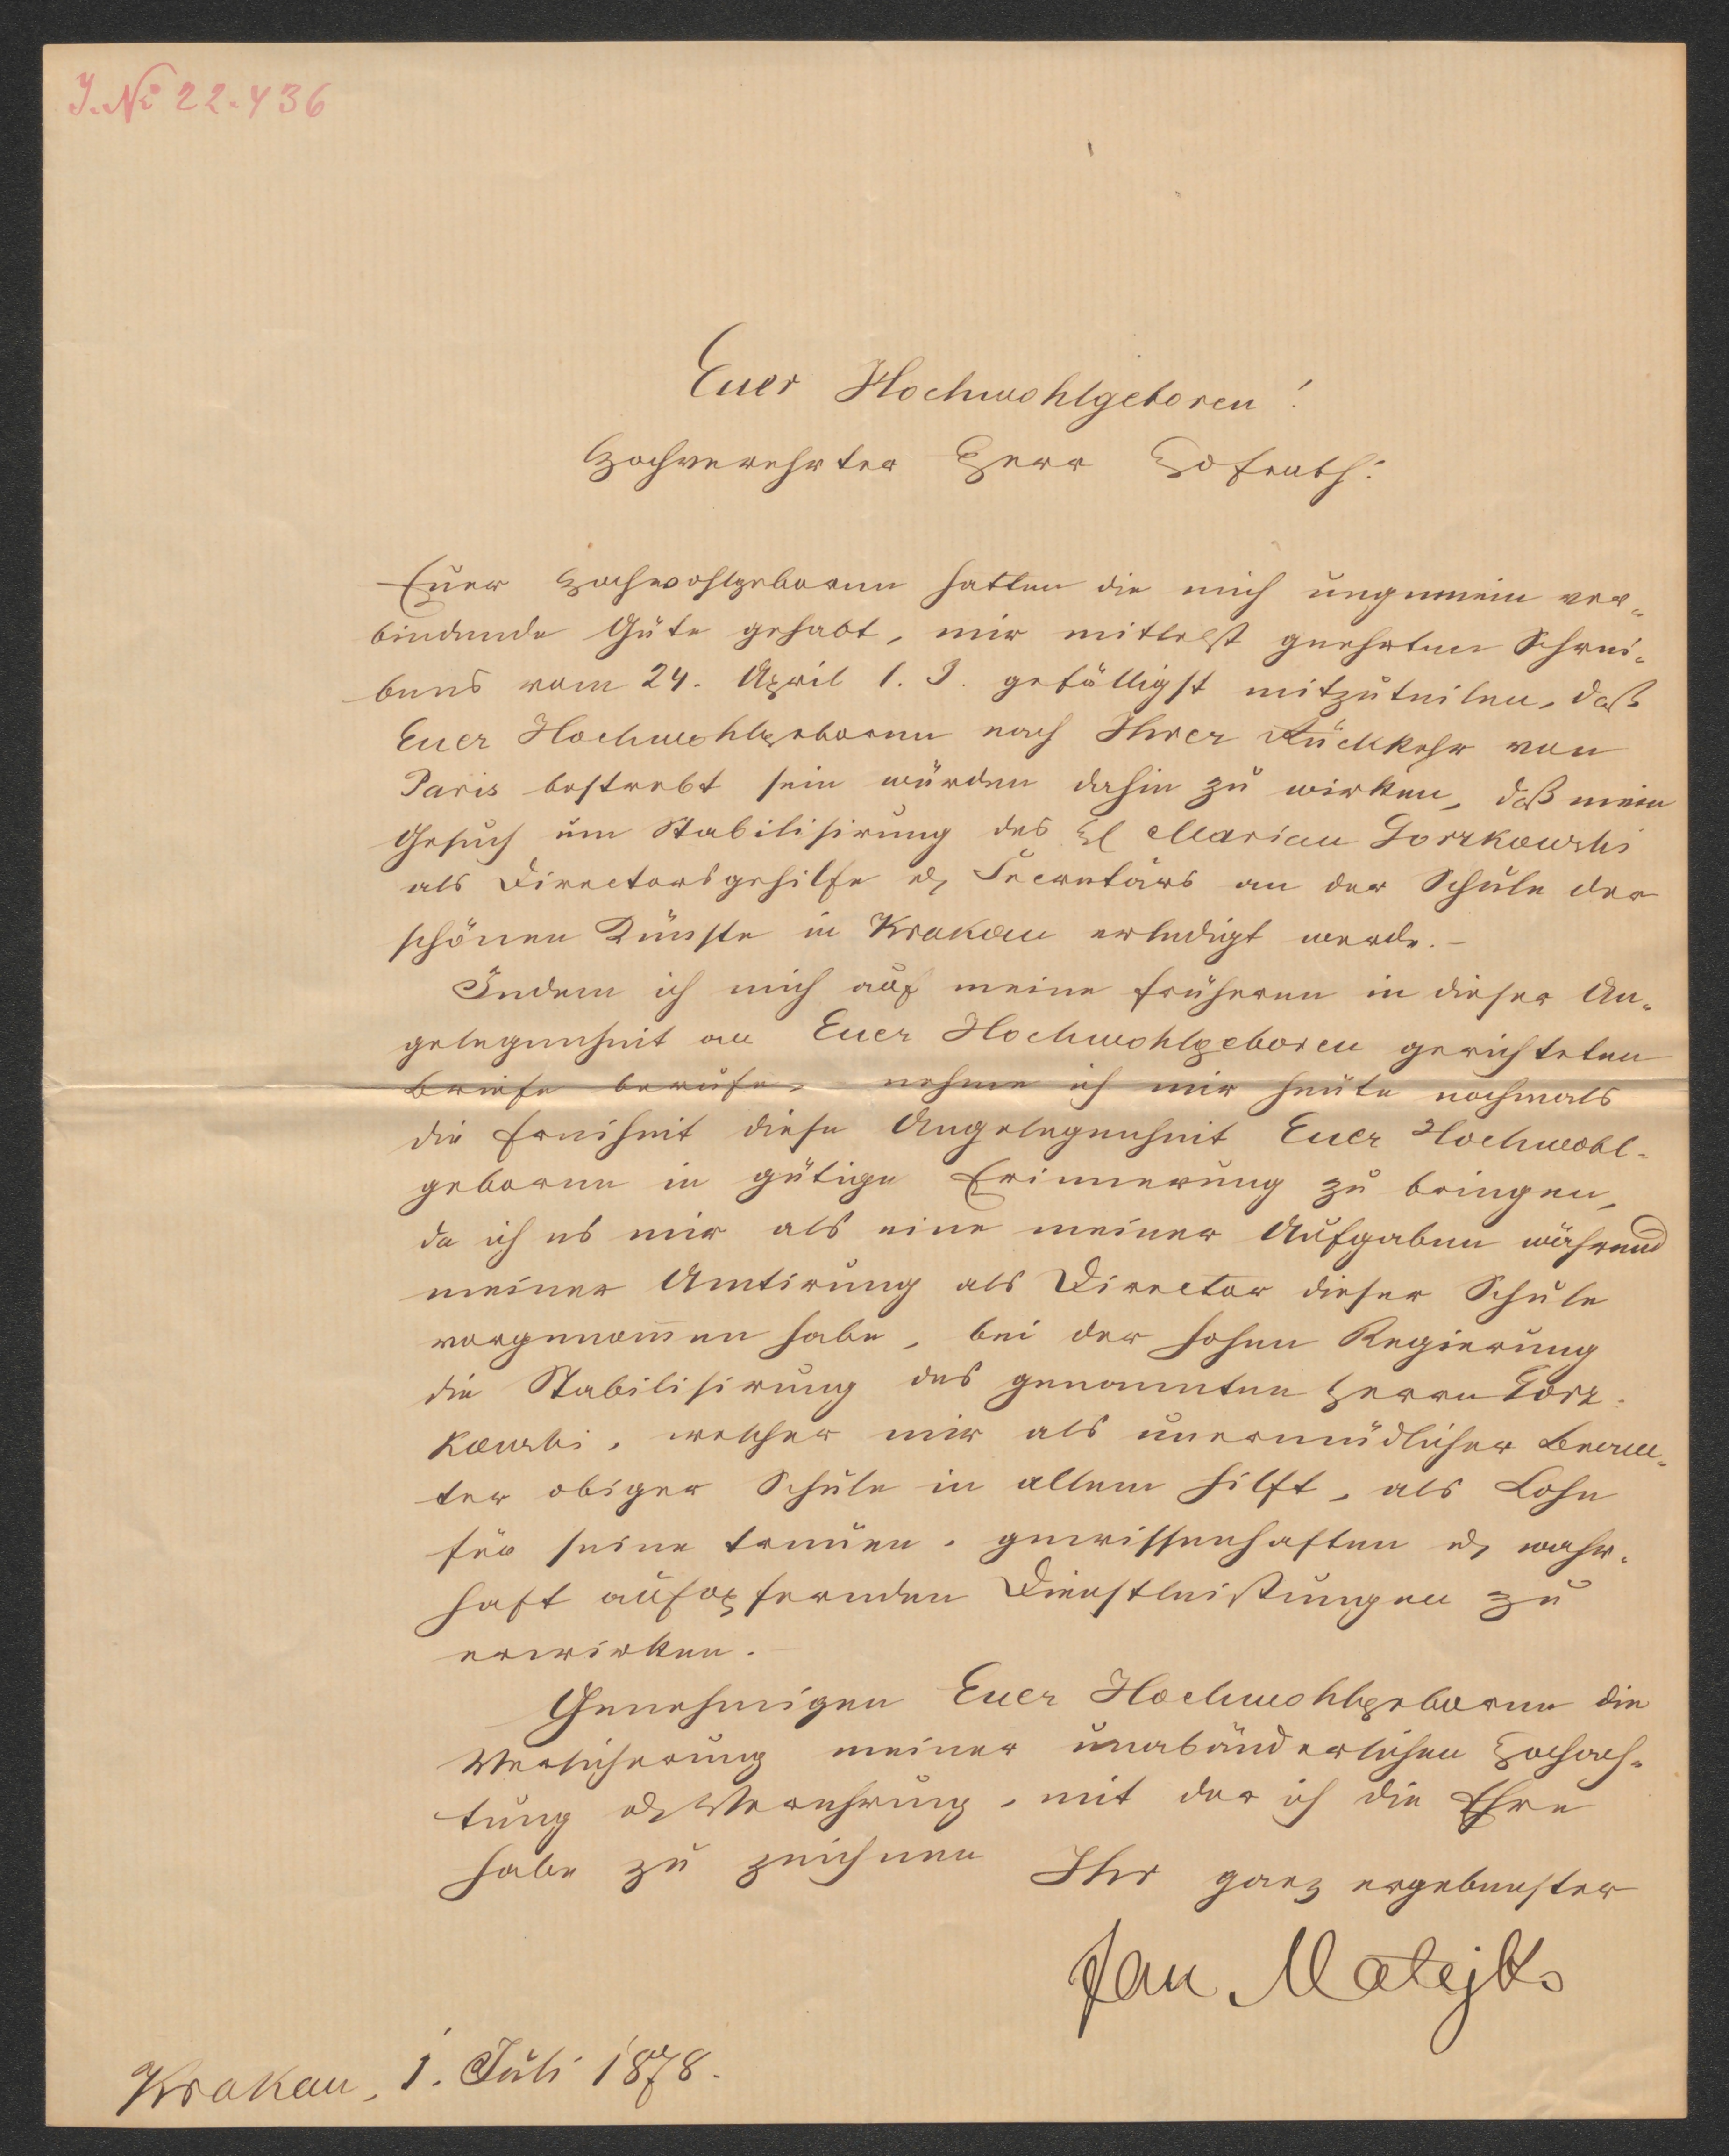 J. No 22.436
Euer Hochwohlgeboren!
Hochverehrter Herr Hofrath!
Euer Hochwohlgeboren hatten die mich ungemein ver-
bindende Güte gehabt, mir mittelst geehrten Schrei-
bens vom 24. April l. J. gefälligst mitzuteilen, daß
Euer Hochwohlgeboren nach Ihrer Rückkehr von
Paris bestrebt sein würden dahin zu wirken, daß mein
Gesuch um Stabilisirung des H Marian Gorzkowski
als Directorsgehilfe & Secretärs an der Schule der
schönen Künste in Krakau erledigt werde. -
Indem ich mich auf meine früheren in dieser An-
gelegenheit an Euer Hochwohlgeboren gerichteten
Briefe berufe, nehme ich mir heute nochmals
die Freiheit diese Angelegenheit Euer Hochwohl-
geboren in gütige Erinnerung zu bringen,
da ich es mir als eine meiner Aufgaben während
meiner Amtirung als Director dieser Schule
vorgenommen habe, bei der hohen Regierung
die Stabilisirung des genannten Herrn Gorz-
kowski, welcher mir als unermüdlicher Beam-
ter obiger Schule in allem hilft, als Lohn
für seine treuen, gewissenhaften & wahr-
haft aufopfernden Dienstleistungen zu
erwirken. -
Genehmigen Euer Hochwohlgeboren die
Versicherung meiner unabänderlichen Hochach-
tung & Verehrung, mit der ich die Ehre
habe zu zeichnen Ihr ganz ergebenster
Jan Matejko
Krakau, 1. Juli 1878.